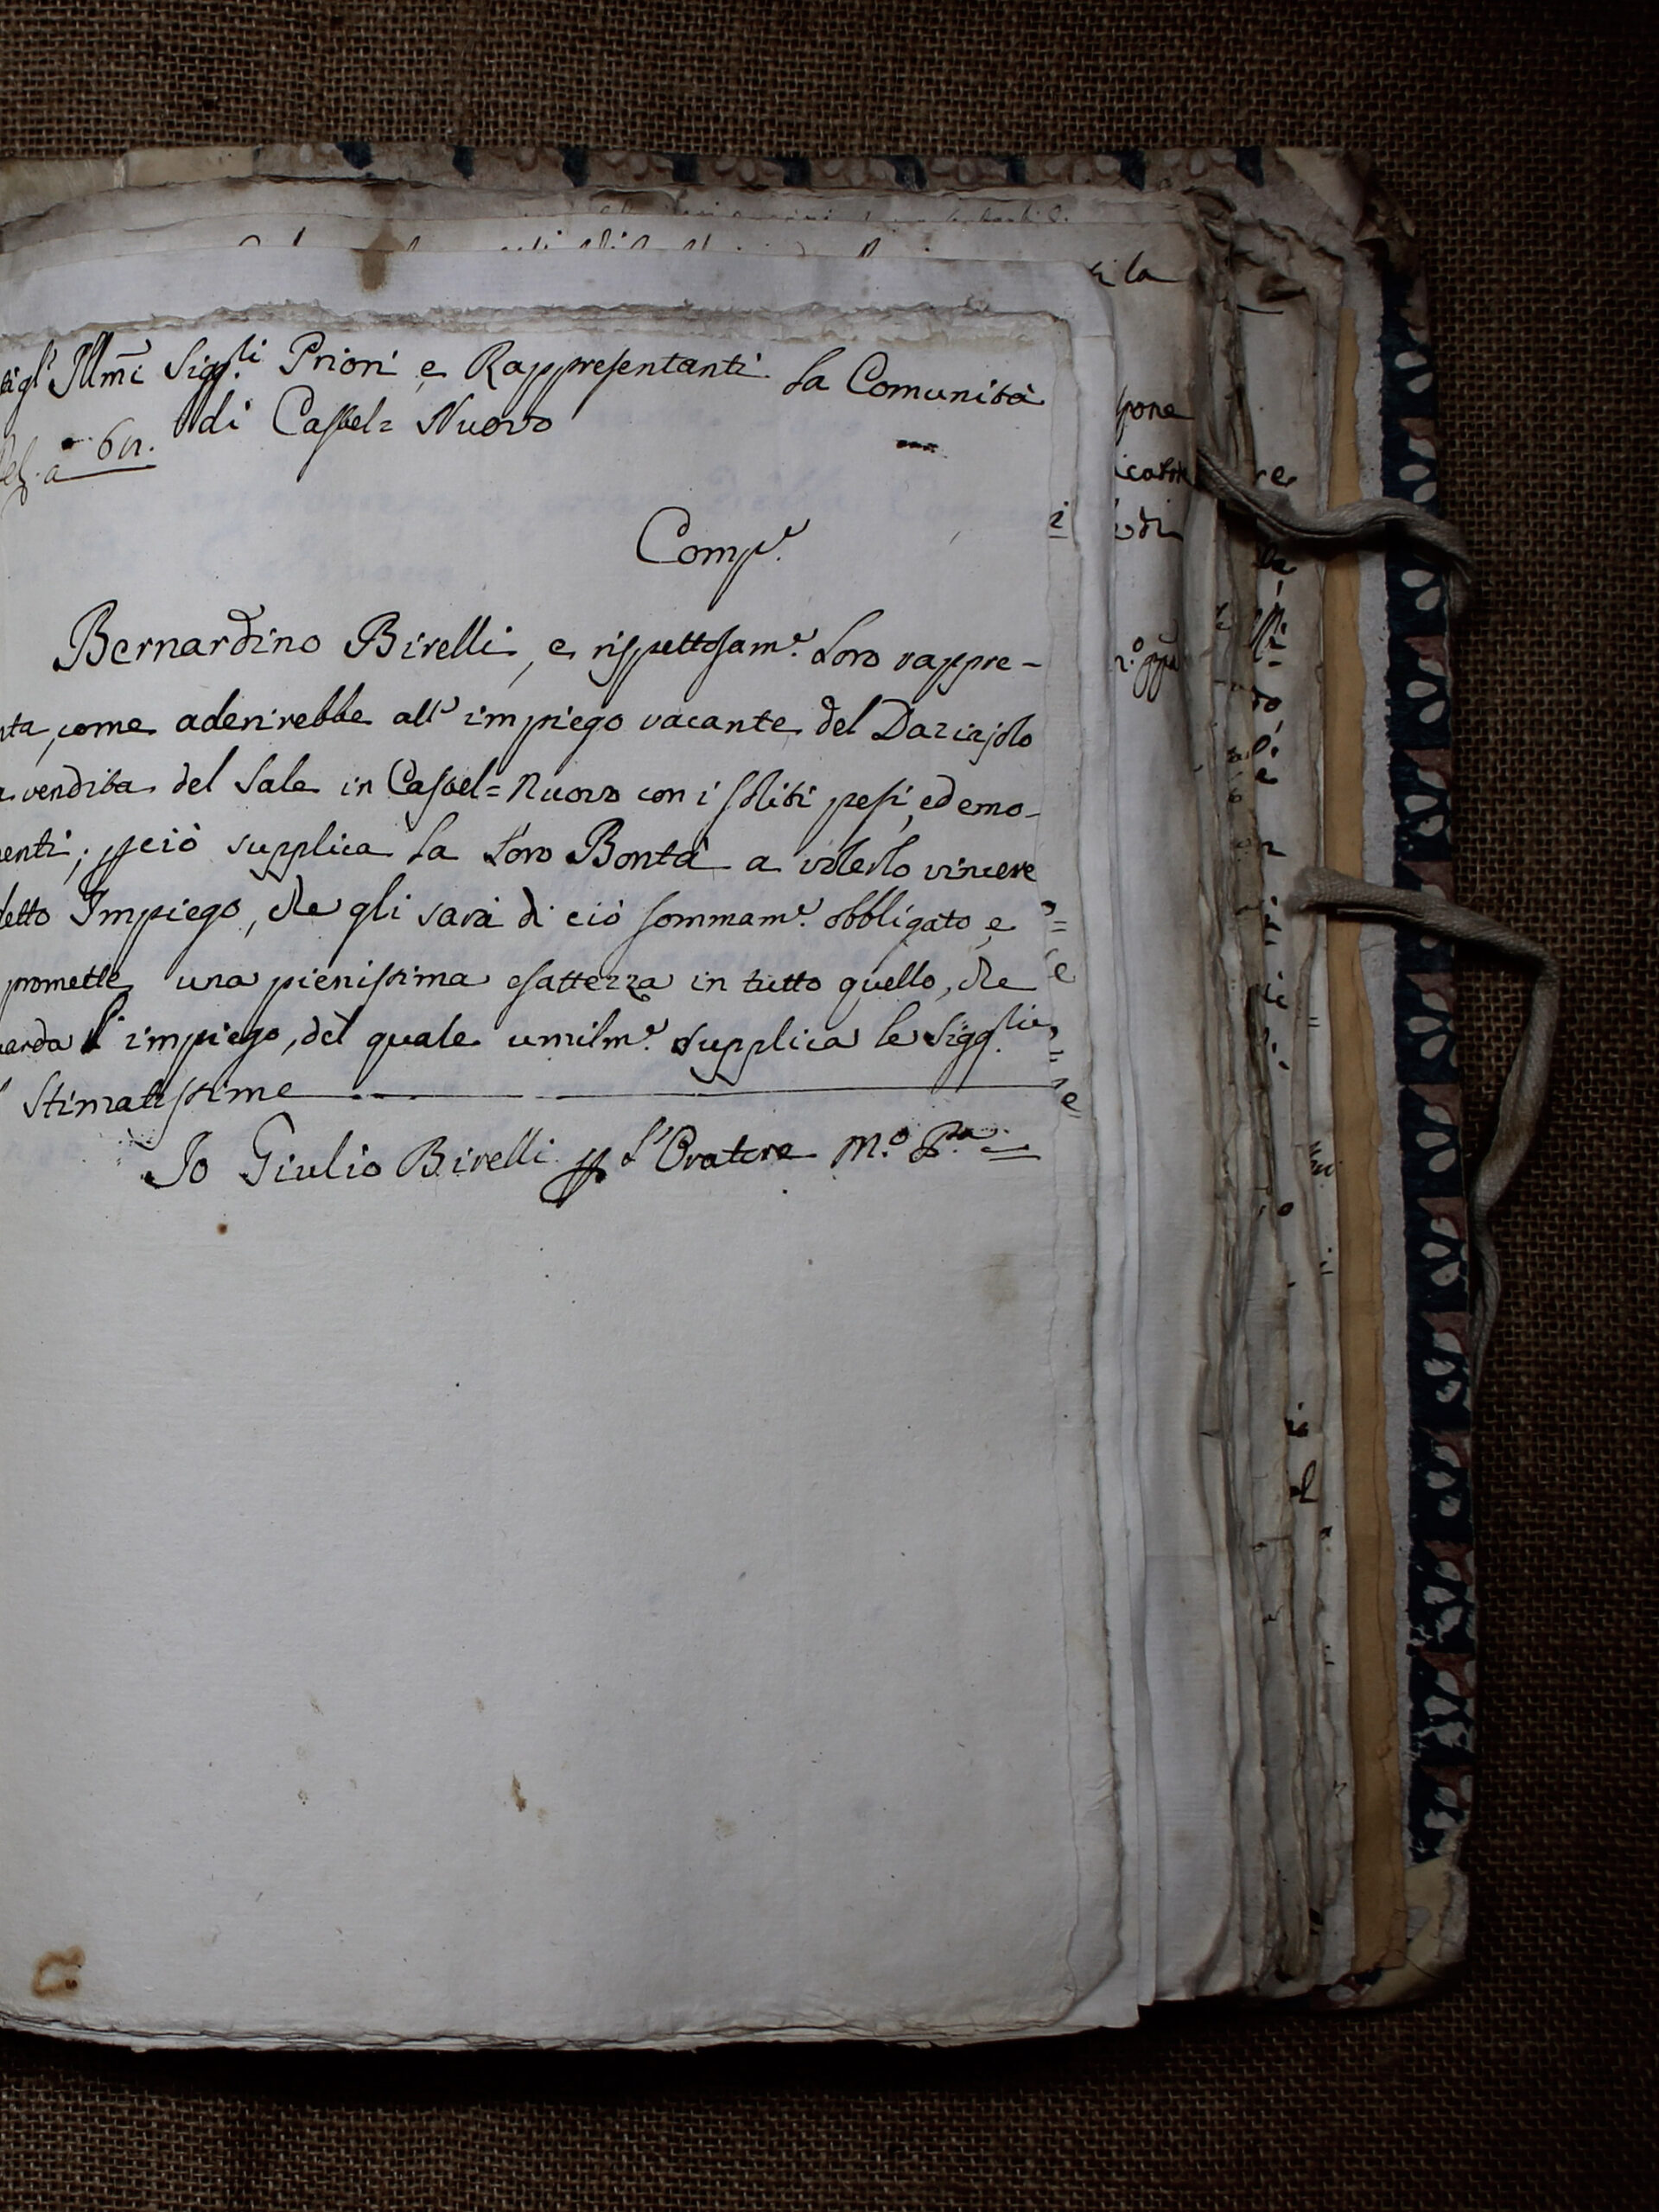 Illmi Sigg.li Priori e Rappresentanti la Comunità
di Castel= Nuovo
a 61.
Comp.e
Bernardino Birelli, e rispettosam.e Loro rappre-
nta, come aderirebbe all' impiego vacante del Daziajolo
vendita del Sale in Castel=Nuovo con i soliti pesi, ed emo-
enti; pciò supplica la Loro Bontà a volerlo vincere
detto Impiego, che gli sarà di ciò sommam.e obbligato e
promette una pienissima esattezza in tutto quello, che
uarda l' impiego, del quale umilm.e supplica le Sigg.lie
Stimatissime
Io Giulio Birelli p l'Oratore m.o P.a